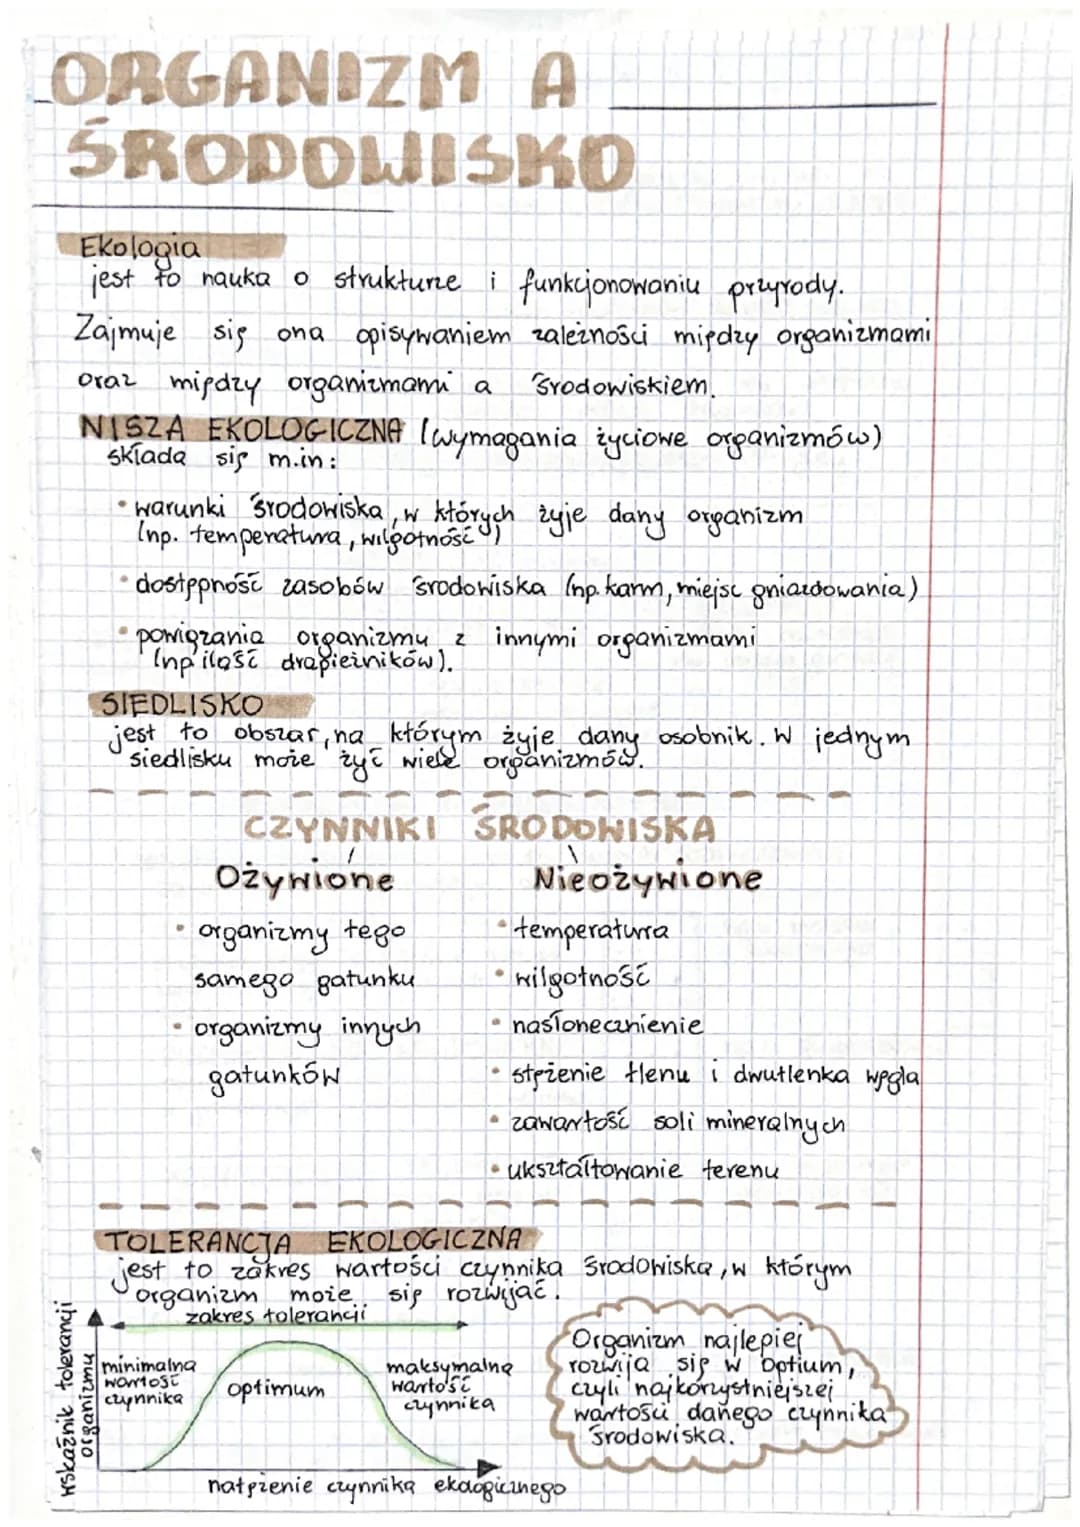 ORGANIZM A
ŚRODOWISKO
Ekologia
jest to nauka o strukturze i funkcjonowaniu przyrody.
Zajmuje się ona opisywaniem zależności między organizmami
oraz między organizmami a środowiskiem.
NISZA EKOLOGICZNA (wymagania życiowe organizmów)
składa się m.in:
• warunki środowiska, w których żyje dany organizm
(np. temperatura, wilgotność)
• dostępność zasobów środowiska (np. karm, miejsc gniazdowania)
• powiązania organizmu z innymi organizmami
(np ilość drapieżników).
SIEDLISKO
jest to obszar, na którym żyje dany osobnik. W jednym
siedlisku może żyć wiele organizmów.
CZYNNIKI ŚRODOWISKA
Ożywione
• organizmy tego
samego gatunku
• organizmy innych
gatunków
Nieożywione
• temperatura
• wilgotność
• nasłonecznienie
• stężenie tlenu i dwutlenka węgla
• zawartość soli mineralnych
• ukształtowanie terenu
TOLERANCJA EKOLOGICZNA
jest to zakres wartości czynnika środowiska, w którym
organizm może się rozwijać.
zakres tolerancji
wskaźnik tolerancji
organizmu
minimalna
wartość
czynnika
optimum
maksymalna
wartość
czynnika
natężenie czynnika ekologicznego
Organizm najlepiej
rozwija się w optium,
czyli najkorzystniejszej
wartości danego czynnika
środowiska.